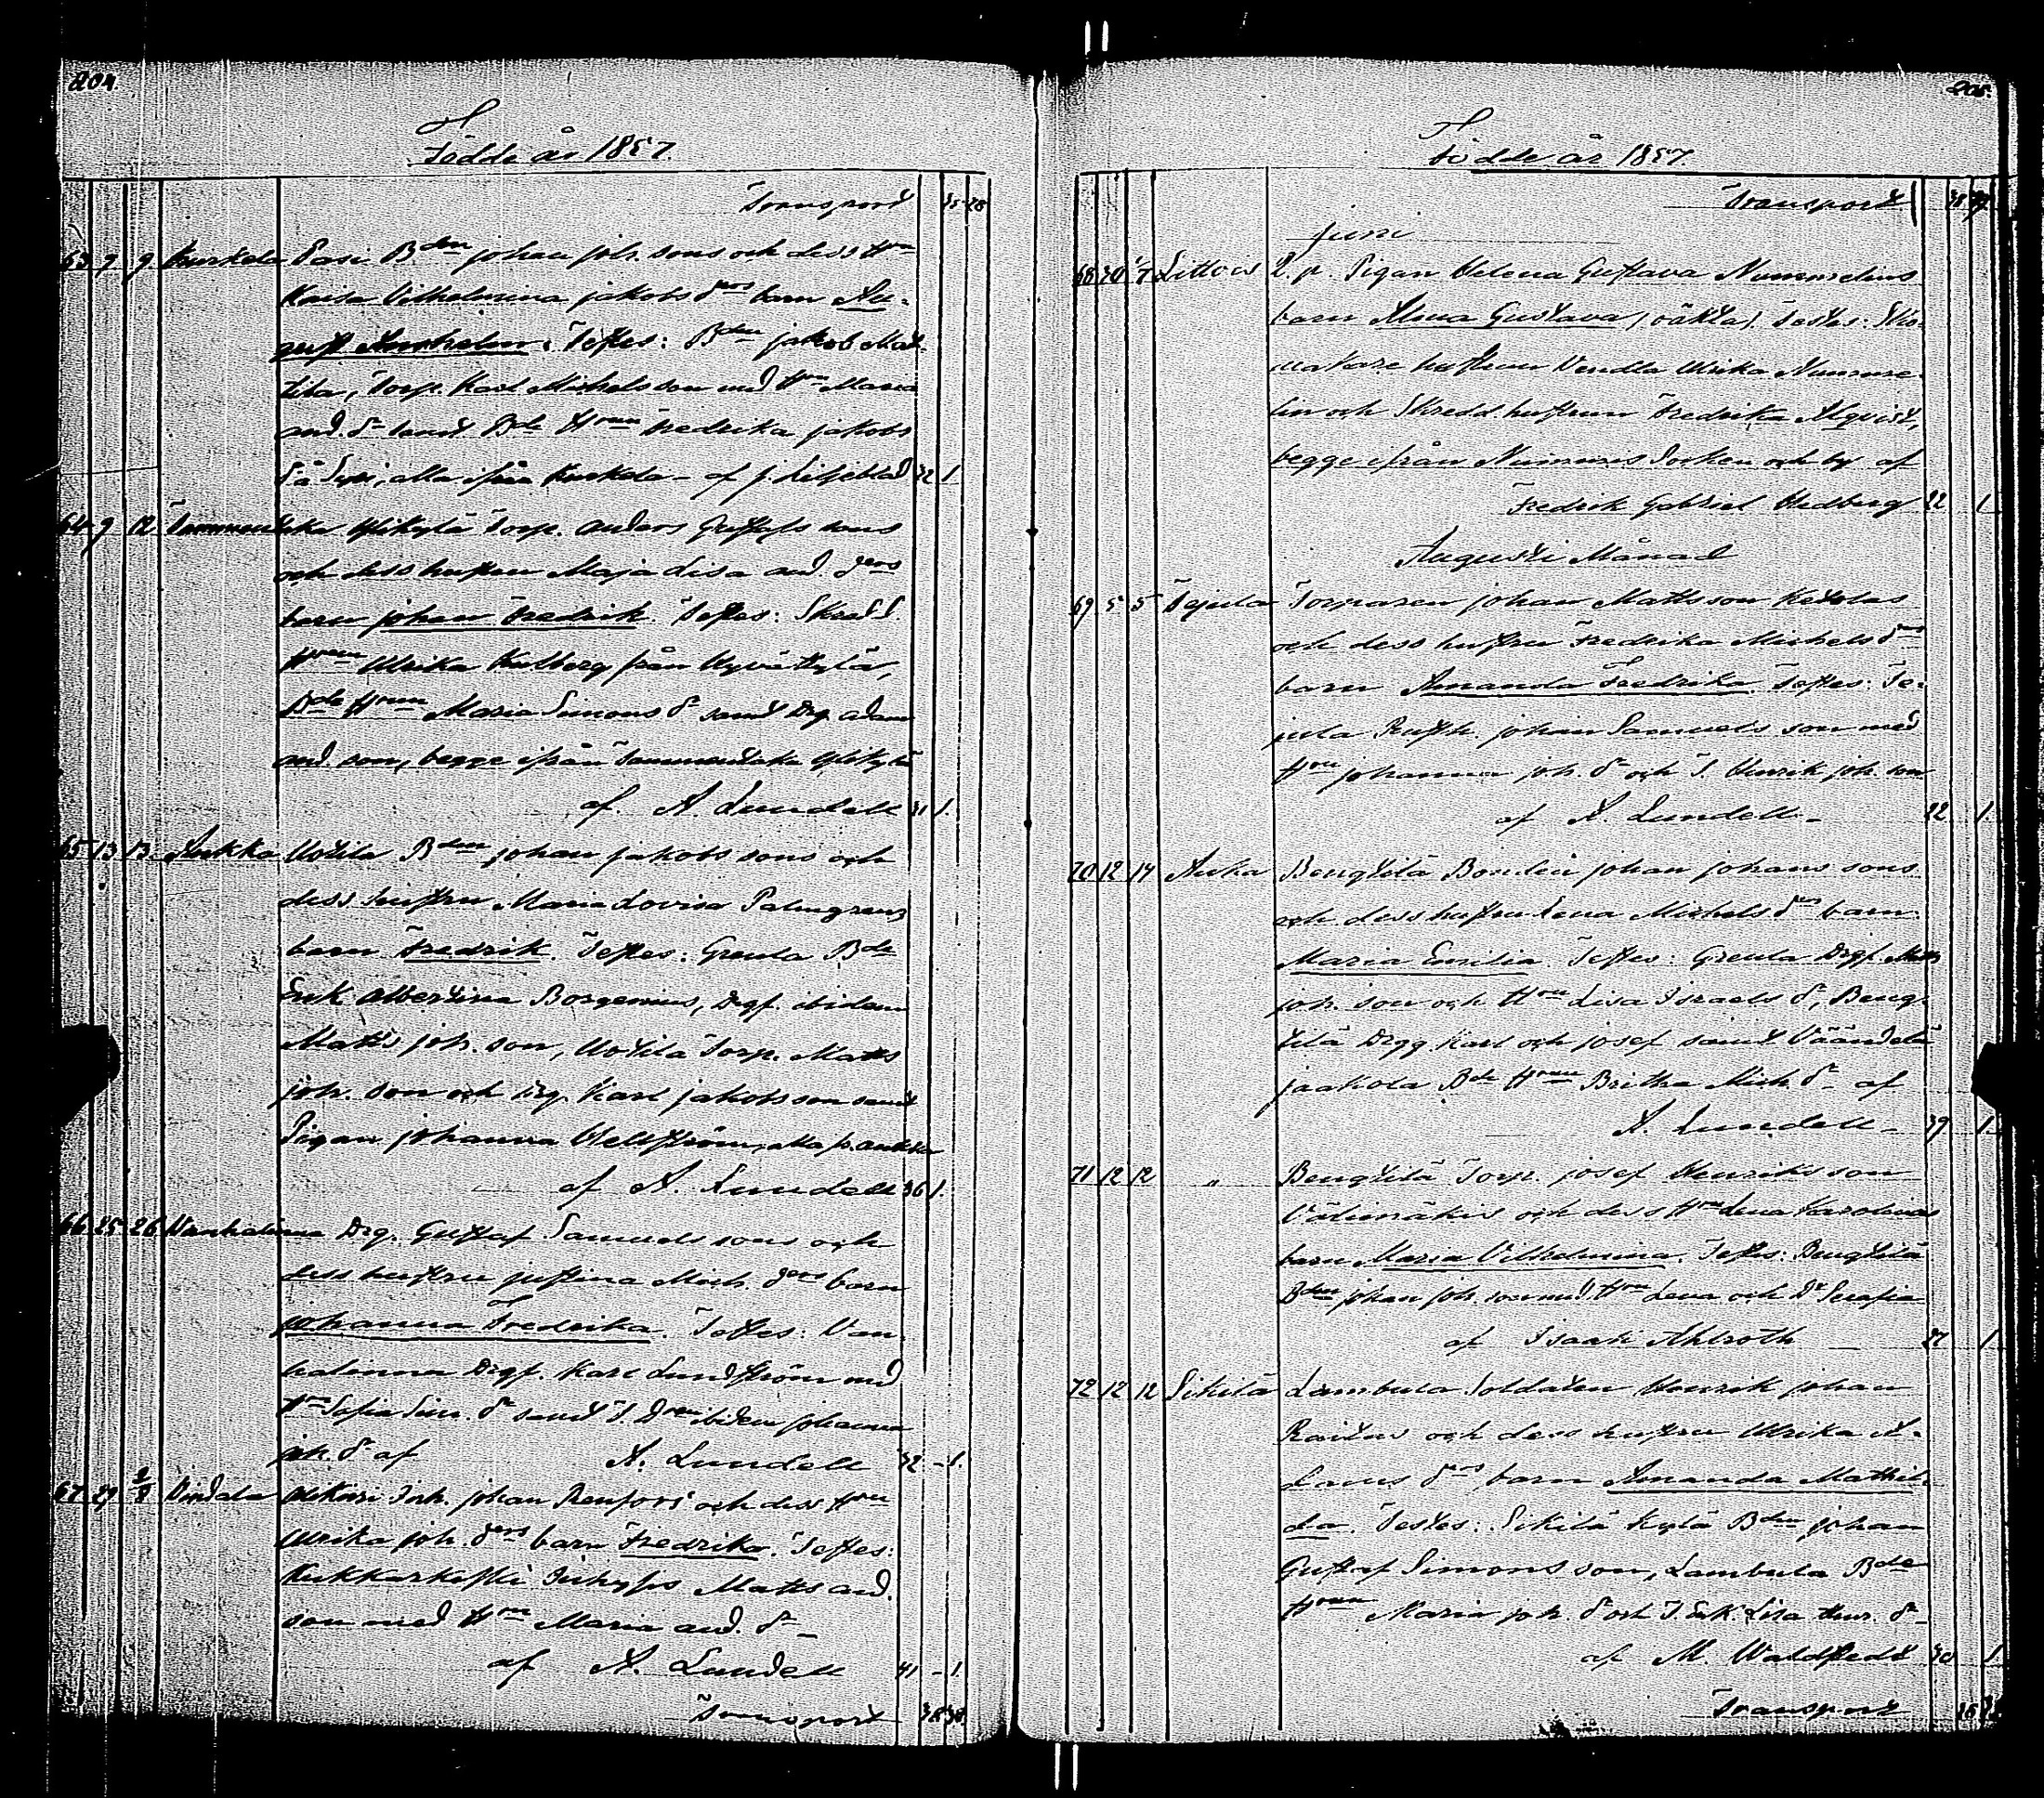 204.
Födde år 1857.
Transport 35 28
63 9 9 Kurkela Pasi Bden Johan Joh. sons och dess Hru
Kaisa Vilhelmina Jakobs drs barn Au-
gust Anshelm. Testes: Bden Jakob Mat-
tila, Torp. Karl Michels son med Hru Maria
And. dr samt Bde Hrun Fredrika Jakobs
dr å Sipi, alla ifrån Kurkela - af J. Liljeblad 32 1.
64 9 12 Tammentaka Ylikylä Torp. Anders Gustafs sons
och dess hustru Maja Lisa And. drs
barn Johan Fredrik. Testes: Skradd.
Hrun Ulrika Kulberg från Hyvättylä,
Bde Hrun Maria Simons dr samt Drg. Adam
And. son, begge ifrån Tammentaka Ylikylä
af A. Lundell 31 1.
65 13 13. Aukka Uotila Bden Johan Jakobs sons och
dess hustru Maria Lovisa Palmgrens
barn Fredrik. Testes: Greula Bde
Enk. Albertina Borgenius, Drgf. ibidem
Matts Joh. son, Uotila Torp. Matts
Joh. son och Drg. Karl Jakobs son samt
Pigan Johanna Hellström, alla fr. Aukka
af A. Lundell 36 1.
66 25 26 Vanhalinna Drg. Gustaf Samuels sons och
dess hustru Justina Mich. drs barn
Johanna Fredrika. Testes: Van-
halinna Drgf. Karl Lundström med
Hru Sofia Sim. dr samt T. Dren ibidem Johanna
Joh. dr af A. Lundell 32 - 1.
67 29 2/8 Uskari Inh. Johan Renfors och dess Hru
Ulrika Joh. drs barn Fredrika. Testes:
Kukkarkoski Inhyses Matts And.
son med Hru Maria And. dr -
af A. Lundell 41 - 1.
Transport 38 30.
205.
Födde år 1857
Transport 38
Juni
68 30 /7 Littois Q. p. Pigan Helena Gustava Nummelins
barn Alma Gustava (oäkta). Testes: Sko-
makare hustrun Vendla Ulrika Numme-
lin och Skredd. hustrun Fredrika Alqvist,
begge ifrån Nummis Socken och by af
Fredrik Gabriel Hedberg 22 1.
Augusti Månad
69 5 5 Tejula Torparen Johan Matts son Ketolas
och dess hustru Fredrika Michels drs
barn Amanda Fredrika. Testes: Te-
jula Rusth. Johan Samuels son med
Hru Johanna Joh. dr och T. Henrik Joh. son
af A. Lundell - 22 1.
70 12 14 Auka Bengtilä Bonden Johan Johans sons
och dess hustru Lena Michels drs barn
Maria Emilia. Testes: Greula Drgf. Matts
Joh. son och Hru Lisa Israels dr, Beng-
tilä Drgg. Karl och Josef samt Väändelä
Jaakola Bde Hrun Britha Mich. dr - af
A. Lundell - 39 1.
71 12 12 " Bengtilä Torp. Josef Henriks son
Välimäkis och dess Hru Lena Karolinas
barn Maria Vilhelmina. Testes: Bengtilä
Bden Johan Joh. son med Hru Lena och Dr Serafia
af Isaak Ahlroth 27 1
72 12 12 Sikilä Lambula Soldaten Henrik Johan
Raitas och dess hustru Ulrika A-
dams drs barn Amanda Mathil-
da. Testes: Sikilä Kylä Bden Johan
Gustaf Simons son, Lambula Bde
Hrun Maria Joh. dr och T. Enk. Lisa Henr. dr -
af M. Waldstedt 30 1.
Transport